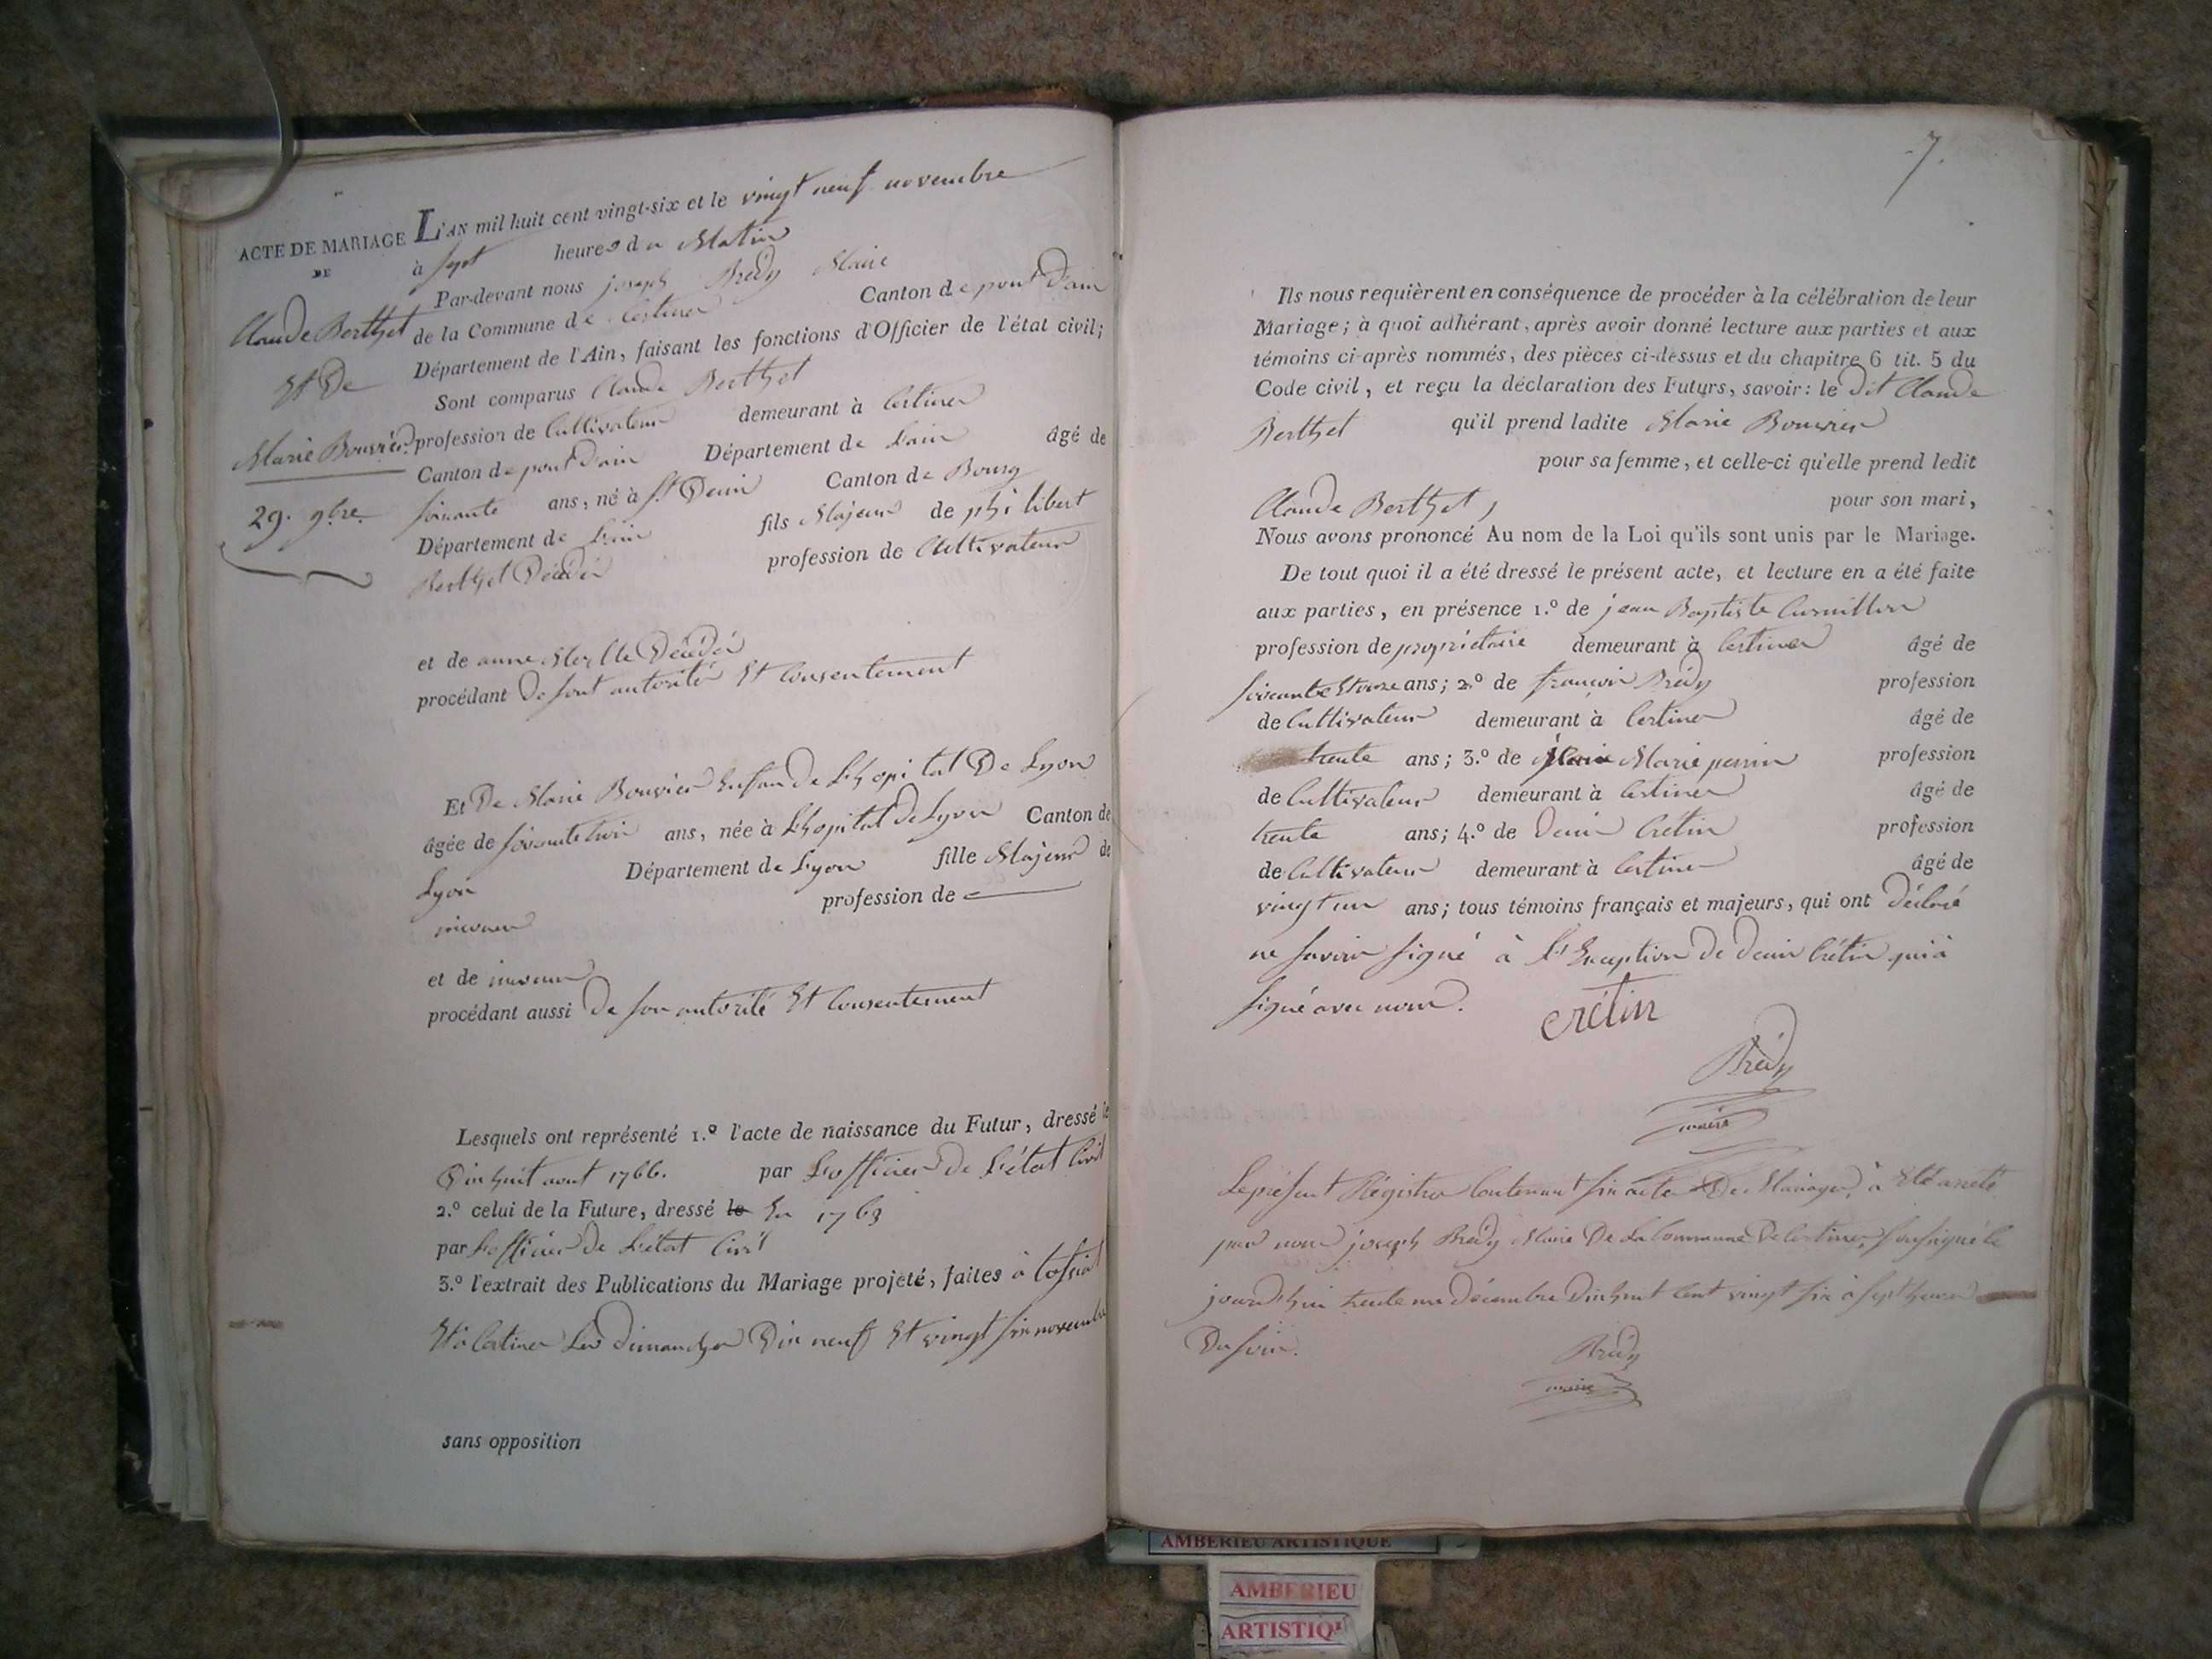 ACTE DE MARIAGE
DE
Claude Berthet
Et De
Marie Bouvier
29. 9bre
L'AN mil huit cent vingt-six et le vingt neuf novembre
à sept heures du Matin
Par-devant nous joseph Brédy Maire
de la Commune de Certines Canton de pont D'ain
Département de l'Ain, faisant les fonctions d'Officier de l'état civil;
Sont comparus Claude Berthet
profession de Cultivateur demeurant à Certines
Canton de pont D'ain Département de L'ain âgé de
soixante ans, né à St Denis Canton de Bourg
Département de L'ain fils Majeur de philibert
Berthet Décédé profession de Cultivateur
et de anne Décédé
procédant De sont autorité Et Consentement
Et De Marie Bouvier Enfan de L'hopital De Lyon
âgée de ans, née à L'hopital de Lyon Canton de
Lyon Département de Lyon fille Majeur de
profession de
et de
procédant aussi De son autorité Et Consentement
Lesquels ont représenté 1.º l'acte de naissance du Futur, dressé le
Dix huit aout 1766. par L'officier De L'état Civil
2.º celui de la Future, dressé le En 1763
par L'officier De L'état Civil
3.º l'extrait des Publications du Mariage projeté, faites à
Et à Certines Les Dimanches Dix neuf Et vingt six novembre
sans opposition
7.
Ils nous requièrent en conséquence de procéder à la célébration de leur
Mariage; à quoi adhérant, après avoir donné lecture aux parties et aux
témoins ci-après nommés, des pièces ci-dessus et du chapitre 6 tit. 5 du
Code civil, et reçu la déclaration des Futurs, savoir: le Dit Claude
Berthet qu'il prend ladite Marie Bouvier
pour sa femme, et celle-ci qu'elle prend ledit
Claude Berthet, pour son mari,
Nous avons prononcé Au nom de la Loi qu'ils sont unis par le Mariage.
De tout quoi il a été dressé le présent acte, et lecture en a été faite
aux parties, en présence 1.º de jean Baptiste Cornillon
profession de propriétaire demeurant à Certines âgé de
soixante Et onze ans; 2.º de françois Brédy profession
de Cultivateur demeurant à Certines âgé de
trente ans; 3.º de Marie perrin profession
de Cultivateur demeurant à Certines âgé de
trente ans; 4.º de Denis Crétin profession
de Cultivateur demeurant à Certines âgé de
vingt un ans; tous témoins français et majeurs, qui ont Déclaré
ne savoir signé à L'Exception De denis Crétin qui a
signé avec nous.
crétin
Brédy
maire
Le présent Régistre Contenant six actes De Mariages, à Eté arreté
par nous joseph Brédy Maire De La Commune De Certines, soussigné le
jourd'hui trente un décembre Dix huit Cent vingt six à sept heures
Du soir.
Brédy
maire
AMBERIEU ARTISTIQUE
AMBERIEU
ARTISTIQ